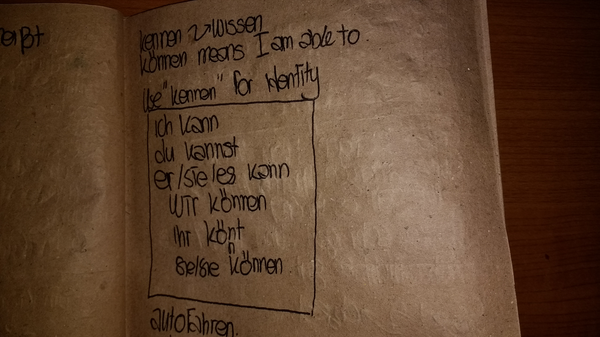 eißt
kennen wissen
können means I am able to.
use "kennen" for identity
ich kann
du kannst
er/sie/es kann
wir können
ihr könnt
sie/sie können
autofahren.